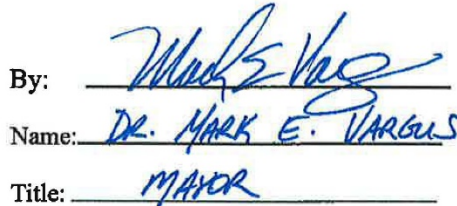 By: Mark E Varg
Name: DR. MARK E. VARGUS
Title: MAYOR